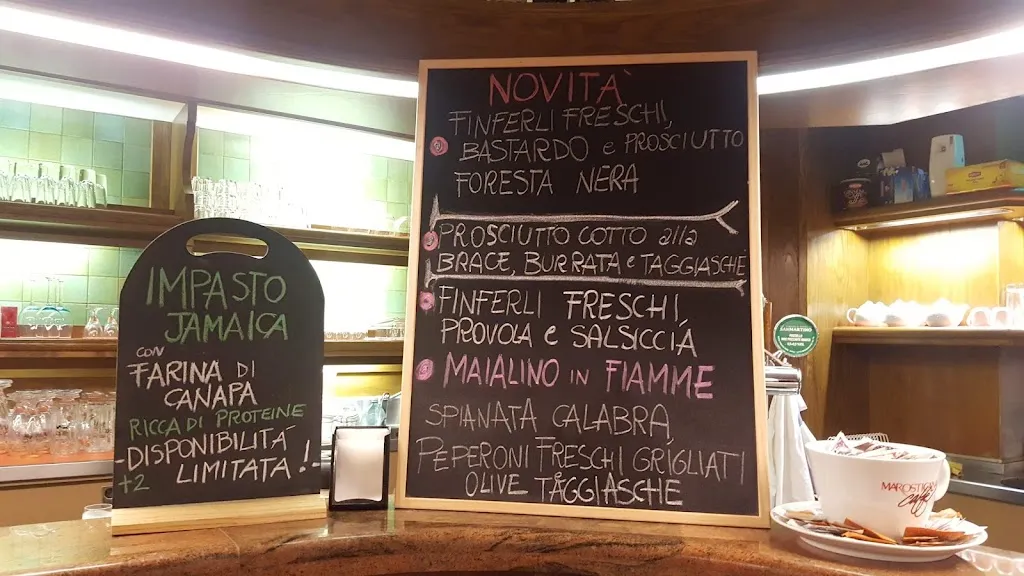 IMPASTO
JAMAICA
CON
FARINA DI
CANAPA
RICCA DI PROTEINE
-DISPONIBILITÁ
LIMITATA!-
+2
NOVITÀ
FINFERLI FRESCHI,
BASTARDO e PROSCIUTTO
FORESTA NERA
PROSCIUTTO COTTO alla
BRACE, BURRATA e TAGGIASCHE
FINFERLI FRESCHI,
PROVOLA e SALSICCIA
MAIALINO IN FIAMME
SPIANATA CALABRA,
PEPERONI FRESCHI GRIGLIATI
OLIVE TAGGIASCHE
SANMARTINO
MAROSTICA